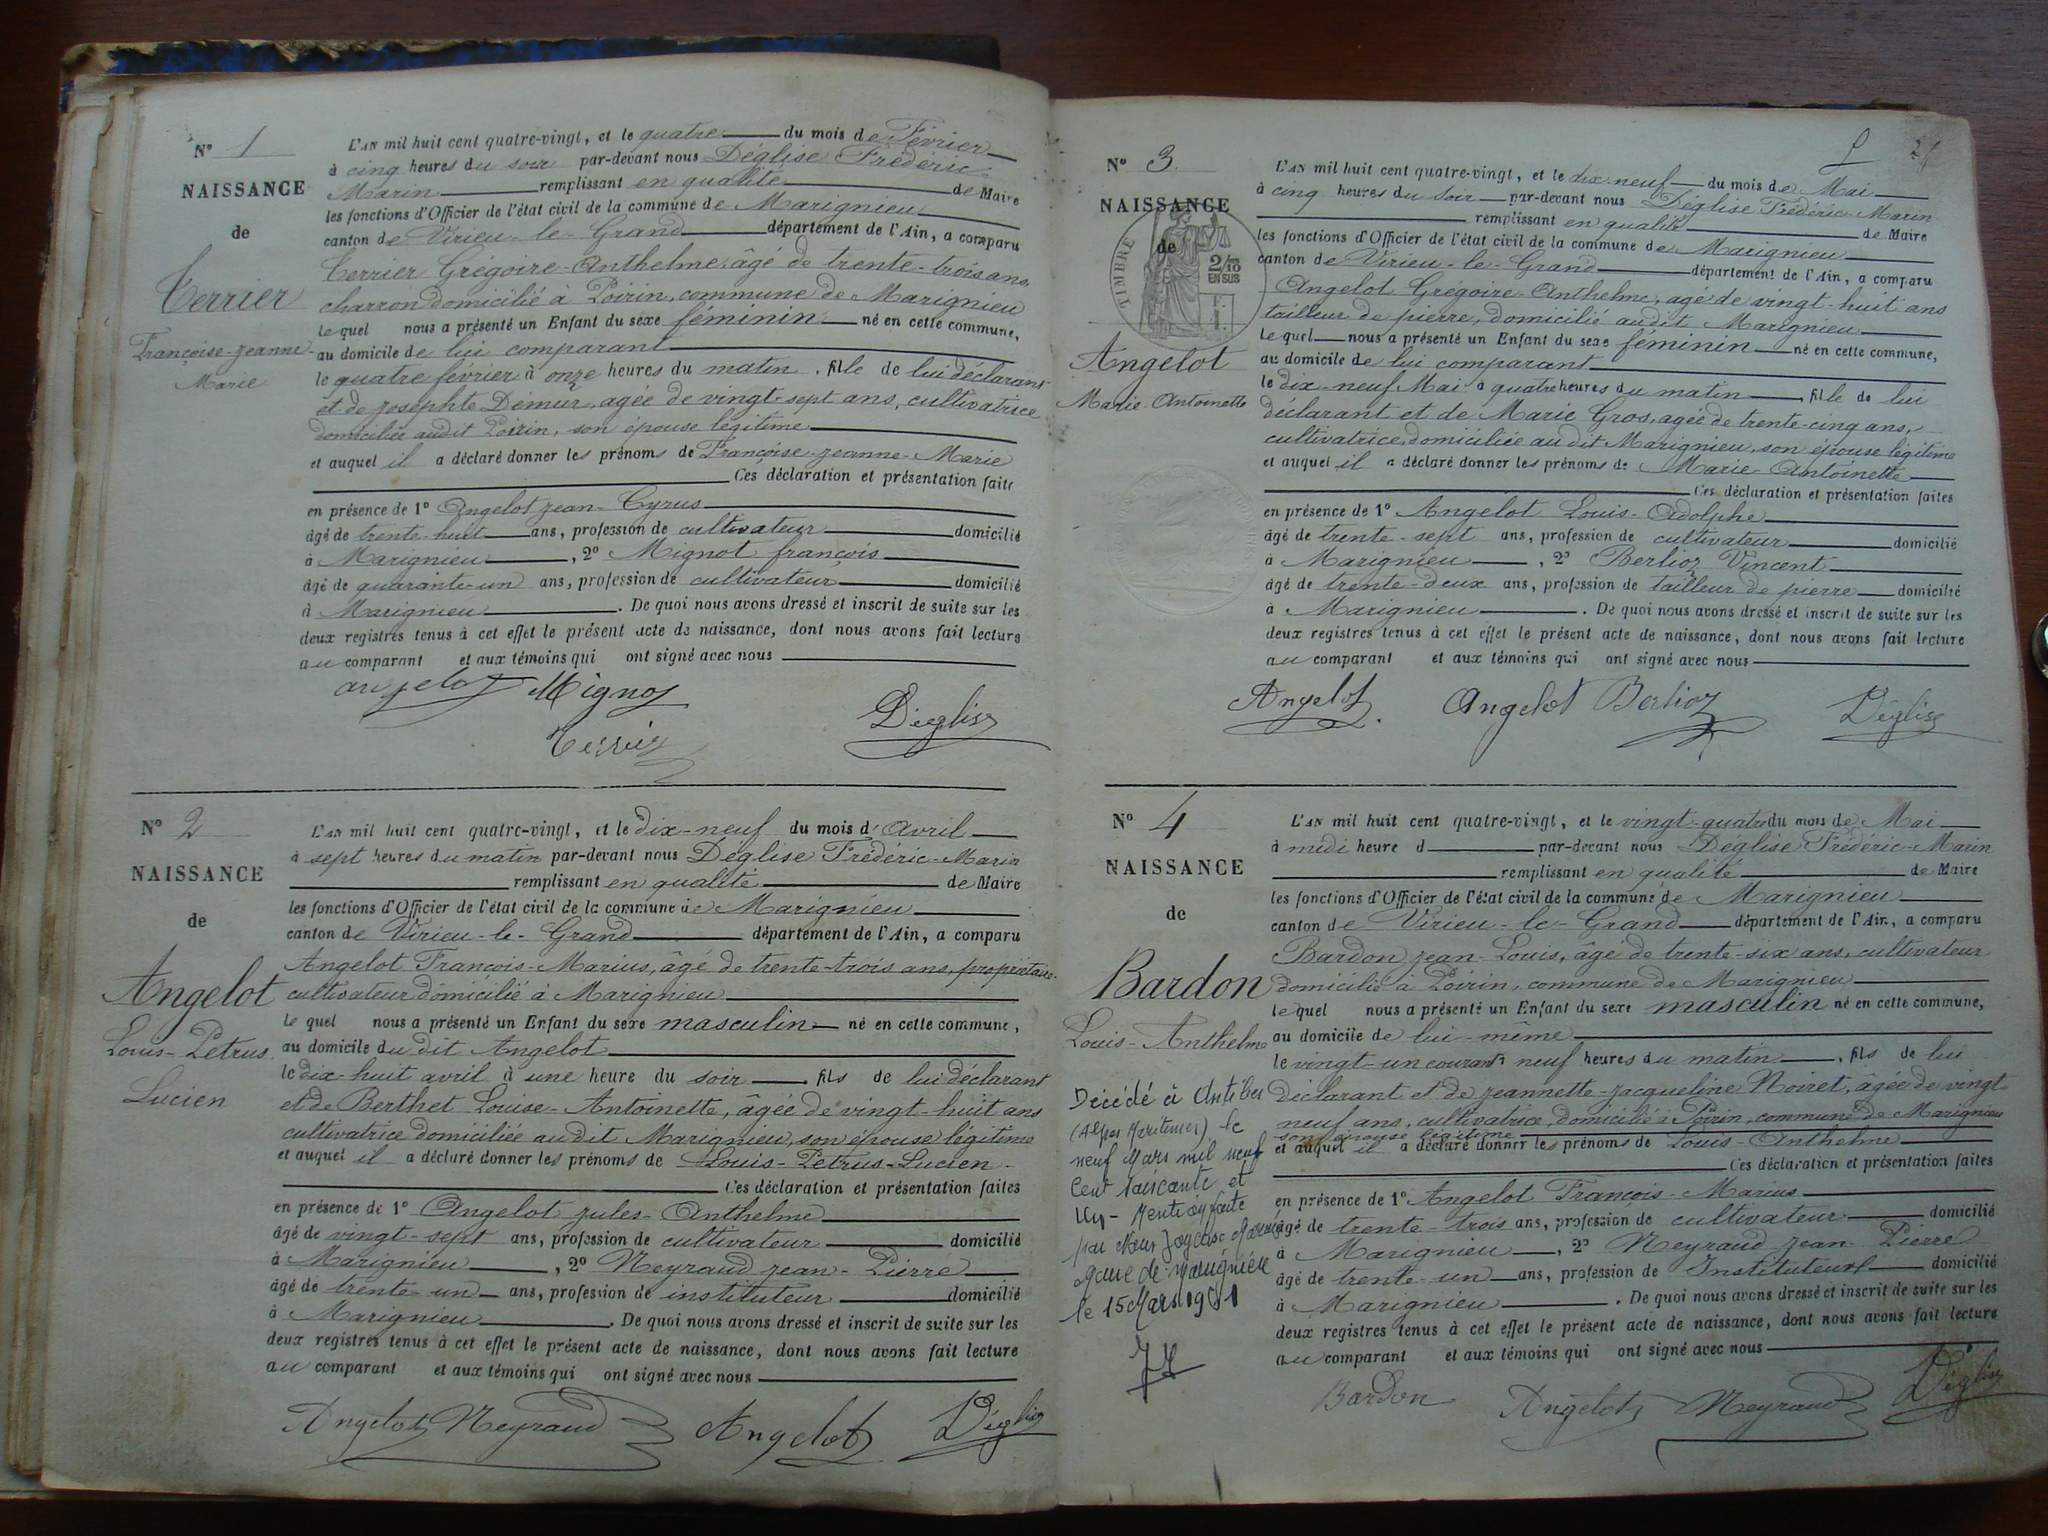 Nº 1
NAISSANCE
de
Terrier
Françoise-Jeanne-
Marie
L'AN mil huit cent quatre-vingt, et le quatre du mois de Février
à cinq heures du soir par-devant nous Déglise Frédéric-
Marin remplissant en qualité de Maire
les fonctions d'Officier de l'état civil de la commune de Marignieu
canton de Virieu-le-Grand département de l'Ain, a comparu
Terrier Grégoire-Anthelme, âgé de trente-trois ans,
charron domicilié à Poirin, commune de Marignieu
le quel nous a présenté un Enfant du sexe féminin né en cette commune,
au domicile de lui comparant
le quatre février à onze heures du matin, fille de lui déclarant
et de Josephte Démur, agée de vingt-sept ans, cultivatrice
domiciliée audit Poirin, son épouse légitime
et auquel il a déclaré donner les prénoms de Françoise-Jeanne-Marie
Ces déclaration et présentation faite
en présence de 1º Angelot Jean-Cyrus
âgé de trente-huit ans, profession de cultivateur domicilié
à Marignieu, 2º Mignot françois
âgé de quarante-un ans, profession de cultivateur domicilié
à Marignieu. De quoi nous avons dressé et inscrit de suite sur les
deux registres tenus à cet effet le présent acte de naissance, dont nous avons fait lecture
au comparant et aux témoins qui ont signé avec nous
angelot Mignot Déglise
Terrier
Nº 2
NAISSANCE
de
Angelot
Louis-Petrus
Lucien
L'AN mil huit cent quatre-vingt, et le dix-neuf du mois d'Avril
à sept heures du matin par-devant nous Déglise Frédéric-Marin
remplissant en qualité de Maire
les fonctions d'Officier de l'état civil de la commune de Marignieu
canton de Virieu-le-Grand département de l'Ain, a comparu
Angelot François-Marius, âgé de trente-trois ans, propriétaire-
cultivateur domicilié à Marignieu
le quel nous a présenté un Enfant du sexe masculin né en cette commune,
au domicile du dit Angelot
le dix-huit avril à une heure du soir, fils de lui déclarant
et de Berthet Louise-Antoinette, âgée de vingt-huit ans
cultivatrice domiciliée audit Marignieu, son épouse légitime
et auquel il a déclaré donner les prénoms de Louis-Petrus-Lucien.
Ces déclaration et présentation faites
en présence de 1º Angelot Jules-Anthelme
âgé de vingt-sept ans, profession de cultivateur domicilié
à Marignieu, 2º Neyraud Jean-Pierre
âgé de trente-un ans, profession de instituteur domicilié
à Marignieu. De quoi nous avons dressé et inscrit de suite sur les
deux registres tenus à cet effet le présent acte de naissance, dont nous avons fait lecture
au comparant et aux témoins qui ont signé avec nous
Angelot Neyraud Angelot Déglise
Nº 3
NAISSANCE
de
TIMBRE
2/10
EN SUS
Angelot
Marie-Antoinette
L'AN mil huit cent quatre-vingt, et le dix-neuf du mois de Mai
à cinq heures du soir par-devant nous Déglise Frédéric-Marin
remplissant en qualité de Maire
les fonctions d'Officier de l'état civil de la commune de Marignieu
canton de Virieu-le-Grand département de l'Ain, a comparu
Angelot Grégoire-Anthelme, agé de vingt-huit ans
tailleur de pierre, domicilié audit Marignieu
le quel nous a présenté un Enfant du sexe féminin né en cette commune,
au domicile de lui comparant
le dix-neuf Mai à quatre heures du matin, fille de lui
déclarant et de Marie Gros, agée de trente-cinq ans,
cultivatrice, domiciliée au dit Marignieu, son épouse légitime
et auquel il a déclaré donner les prénoms de Marie-Antoinette
Ces déclaration et présentation faites
en présence de 1º Angelot Louis-Adolphe
âgé de trente-sept ans, profession de cultivateur domicilié
à Marignieu, 2º Berlioz Vincent
âgé de trente-deux ans, profession de tailleur de pierre domicilié
à Marignieu. De quoi nous avons dressé et inscrit de suite sur les
deux registres tenus à cet effet le présent acte de naissance, dont nous avons fait lecture
au comparant et aux témoins qui ont signé avec nous
Angelot Angelot Berlioz Déglise
Nº 4
NAISSANCE
de
Bardon
Louis-Anthelme
Décédé à Antibes
(Alpes Maritimes) le
neuf Mars mil neuf
cent soixante et
un - Mention faite
par Nous
Maire de Marignieu
le 15 Mars 1961
L'AN mil huit cent quatre-vingt, et le vingt-quatre du mois de Mai
à midi heure d par-devant nous Déglise Frédéric-Marin
remplissant en qualité de Maire
les fonctions d'Officier de l'état civil de la commune de Marignieu
canton de Virieu-le-Grand département de l'Ain, a comparu
Bardon Jean-Louis, âgé de trente-six ans, cultivateur
domicilié à Poirin, commune de Marignieu
le quel nous a présenté un Enfant du sexe masculin né en cette commune,
au domicile de lui-même
le vingt-un courant à neuf heures du matin, fils de lui
déclarant et de Jeannette-Jacqueline Noiret, âgée de vingt-
neuf ans, cultivatrice, domiciliée à Poirin, commune de Marignieu
son épouse légitime
et auquel il a déclaré donner les prénoms de Louis-Anthelme
Ces déclaration et présentation faites
en présence de 1º Angelot François-Marius
âgé de trente-trois ans, profession de cultivateur domicilié
à Marignieu, 2º Neyraud Jean-Pierre
âgé de trente-un ans, profession de Instituteur domicilié
à Marignieu. De quoi nous avons dressé et inscrit de suite sur les
deux registres tenus à cet effet le présent acte de naissance, dont nous avons fait lecture
au comparant et aux témoins qui ont signé avec nous
Bardon Angelot Neyraud Déglise